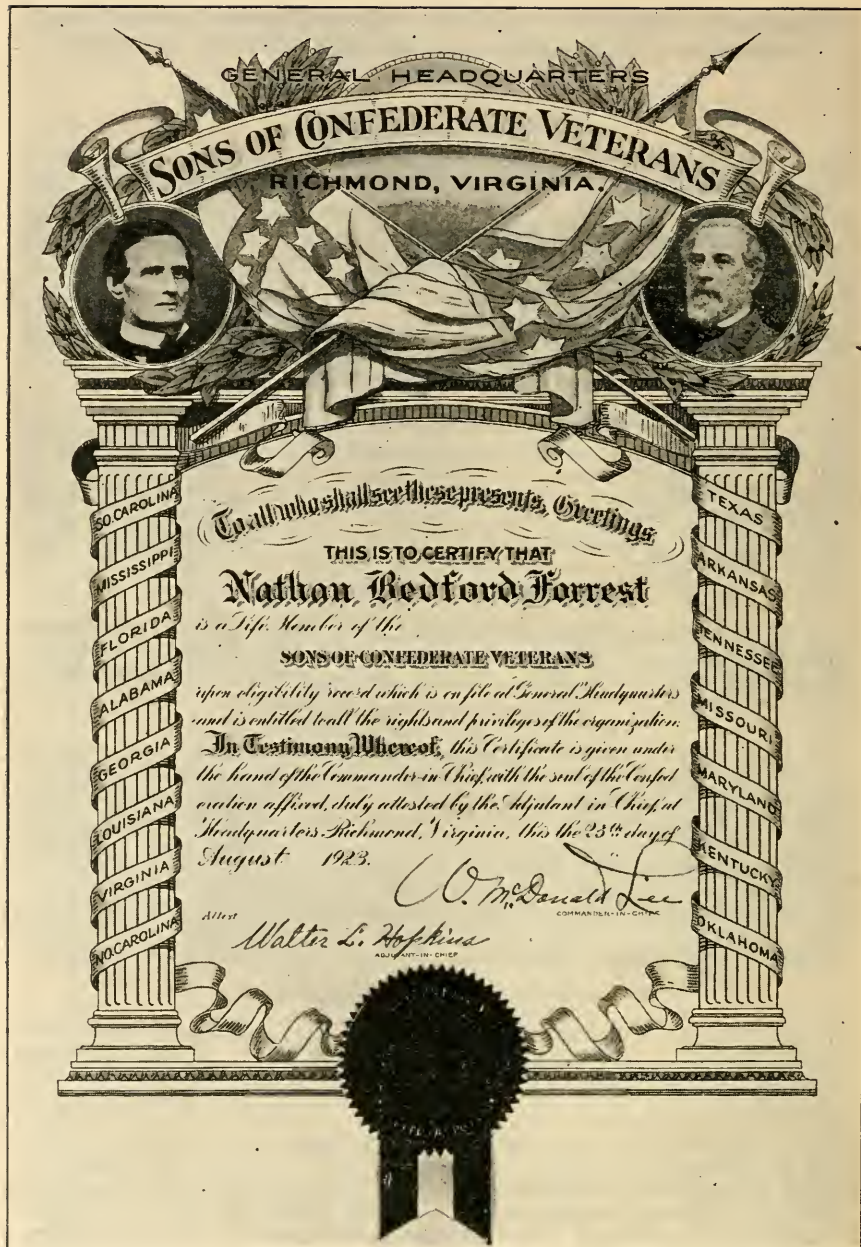 GENERAL HEADQUARTERS
SONS OF CONFEDERATE VETERANS
RICHMOND, VIRGINIA.
SO. CAROLINA
MISSISSIPPI
FLORIDA
ALABAMA
GEORGIA
LOUISIANA
VIRGINIA
NO. CAROLINA
To all who shall see these presents, Greetings
THIS IS TO CERTIFY THAT
Nathan Bedford Forrest
is a Life Member of the
SONS OF CONFEDERATE VETERANS
upon eligibility record which is on file at General Headquarters
and is entitled to all the rights and privileges of the organization.
In Testimony Whereof, this Certificate is given under
the hand of the Commander-in-Chief, with the seal of the Confed
eration affixed, duly attested by the Adjutant in Chief, at
Headquarters Richmond, Virginia, this the 23th day of
August 1923.
W. McDonald Lee
COMMANDER-IN-CHIEF
Attest
Walter L. Hopkins
ADJUTANT-IN-CHIEF
TEXAS
ARKANSAS
TENNESSEE
MISSOURI
MARYLAND
KENTUCKY
OKLAHOMA